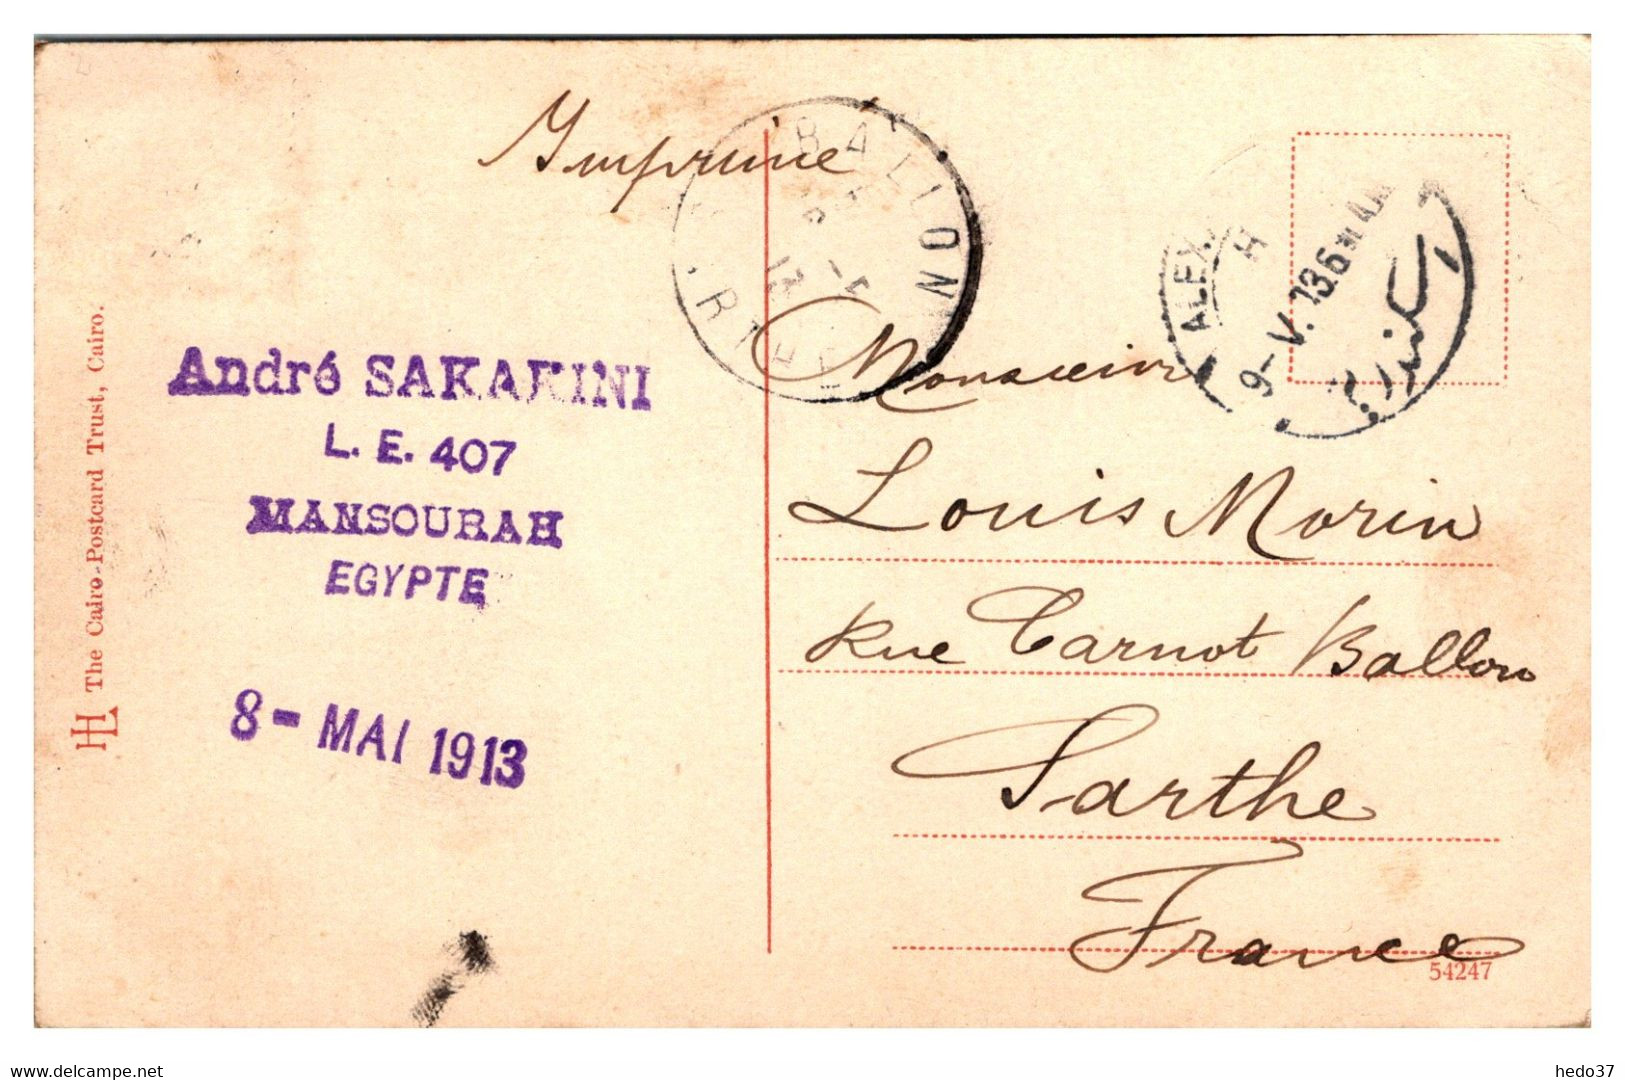 Imprimé
BALLON
SARTHE
13
ALEX.
9-V.13 6
إسكندرية
André SAKAKINI
L. E. 407
MANSOURAH
EGYPTE
8 - MAI 1913
Monsieur
Louis Morin
Rue Carnot Ballon
Sarthe
France
HL The Cairo Postcard Trust, Cairo.
54247
www.delcampe.net
hedo37